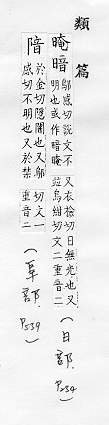 類篇
晻暗
鄔感切說文不
明也或作暗晻
又衣檢切日無光也又
烏紺切文二重音二
(日部. P234)
隌
於金切隱闇也又鄔
感切不明也又於禁
切文一
重音二
(阜部. P539)